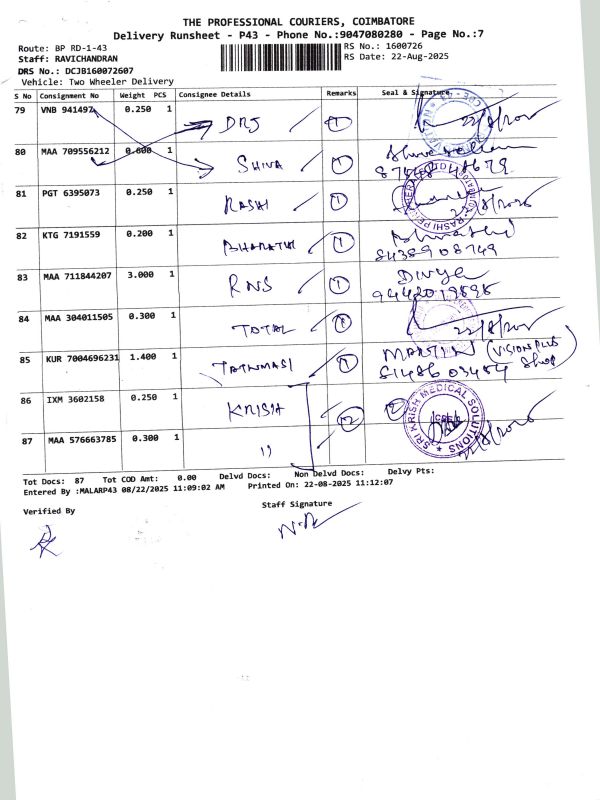 THE PROFESSIONAL COURIERS, COIMBATORE
Delivery Runsheet - P43 - Phone No.:9047080280 - Page No.:7
Route: BP RD-1-43 RS No.: 1600726
Staff: RAVICHANDRAN RS Date: 22-Aug-2025
DRS No.: DCJB160072607
Vehicle: Two Wheeler Delivery
S No Consignment No Weight PCS Consignee Details Remarks Seal & Signature
79 VNB 941497 0.250 1 DRJ 1 22/8/2025
80 MAA 709556212 0.600 1 SHIVA 1
81 PGT 6395073 0.250 1 RASHI 1
82 KTG 7191559 0.200 1 BHARATHI 1
8438908749
83 MAA 711844207 3.000 1 RNS 1 Divya
9442019898
84 MAA 304011505 0.300 1 TOTAL 1 22/8/2025
85 KUR 7004696231 1.400 1 1 MARTIN (VISION PLUS Shop)
8148603454
86 IXM 3602158 0.250 1 KRISH 2 2 SRI KRISH MEDICAL SOLUTIONS
87 MAA 576663785 0.300 1 11
Tot Docs: 87 Tot COD Amt: 0.00 Delvd Docs: Non Delvd Docs: Delvy Pts:
Entered By :MALARP43 08/22/2025 11:09:02 AM Printed On: 22-08-2025 11:12:07
Verified By Staff Signature